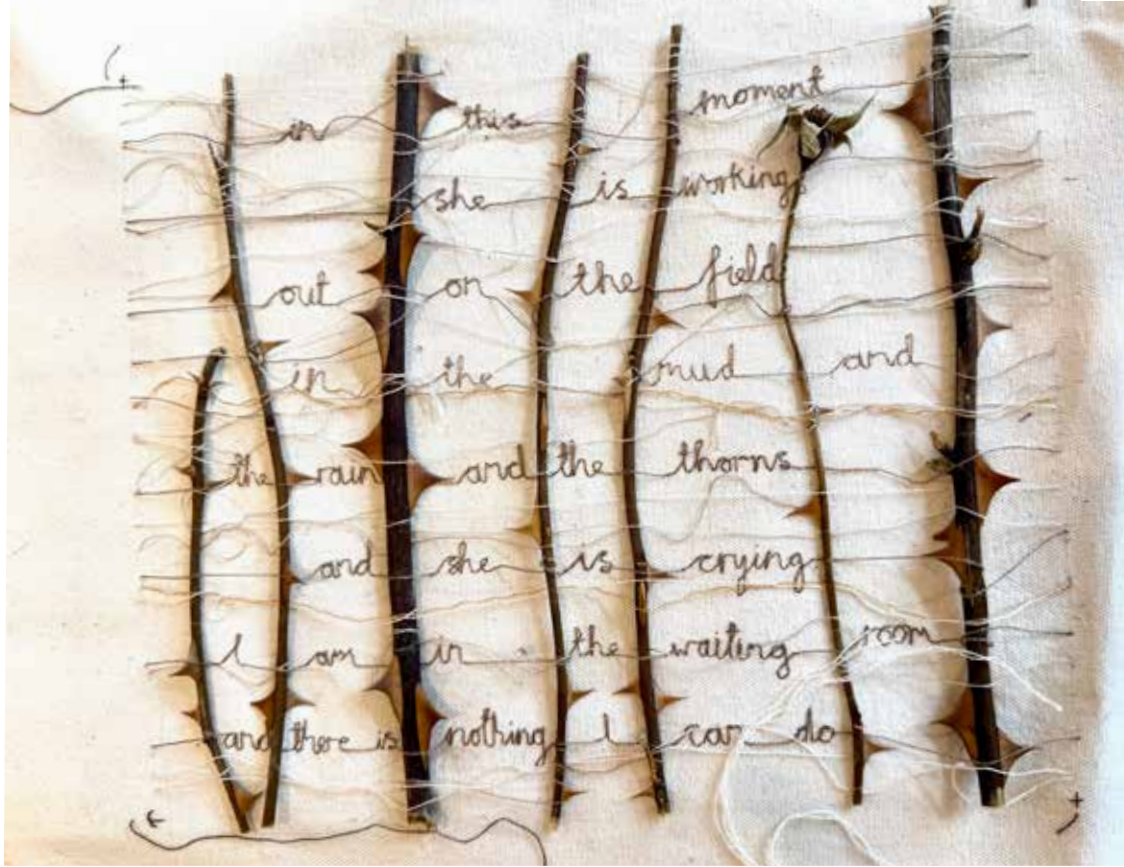 in this moment
she is working
out on the field
in the mud and
the rain and the thorns
and she is crying
I am in the waiting room
and there is nothing I can do